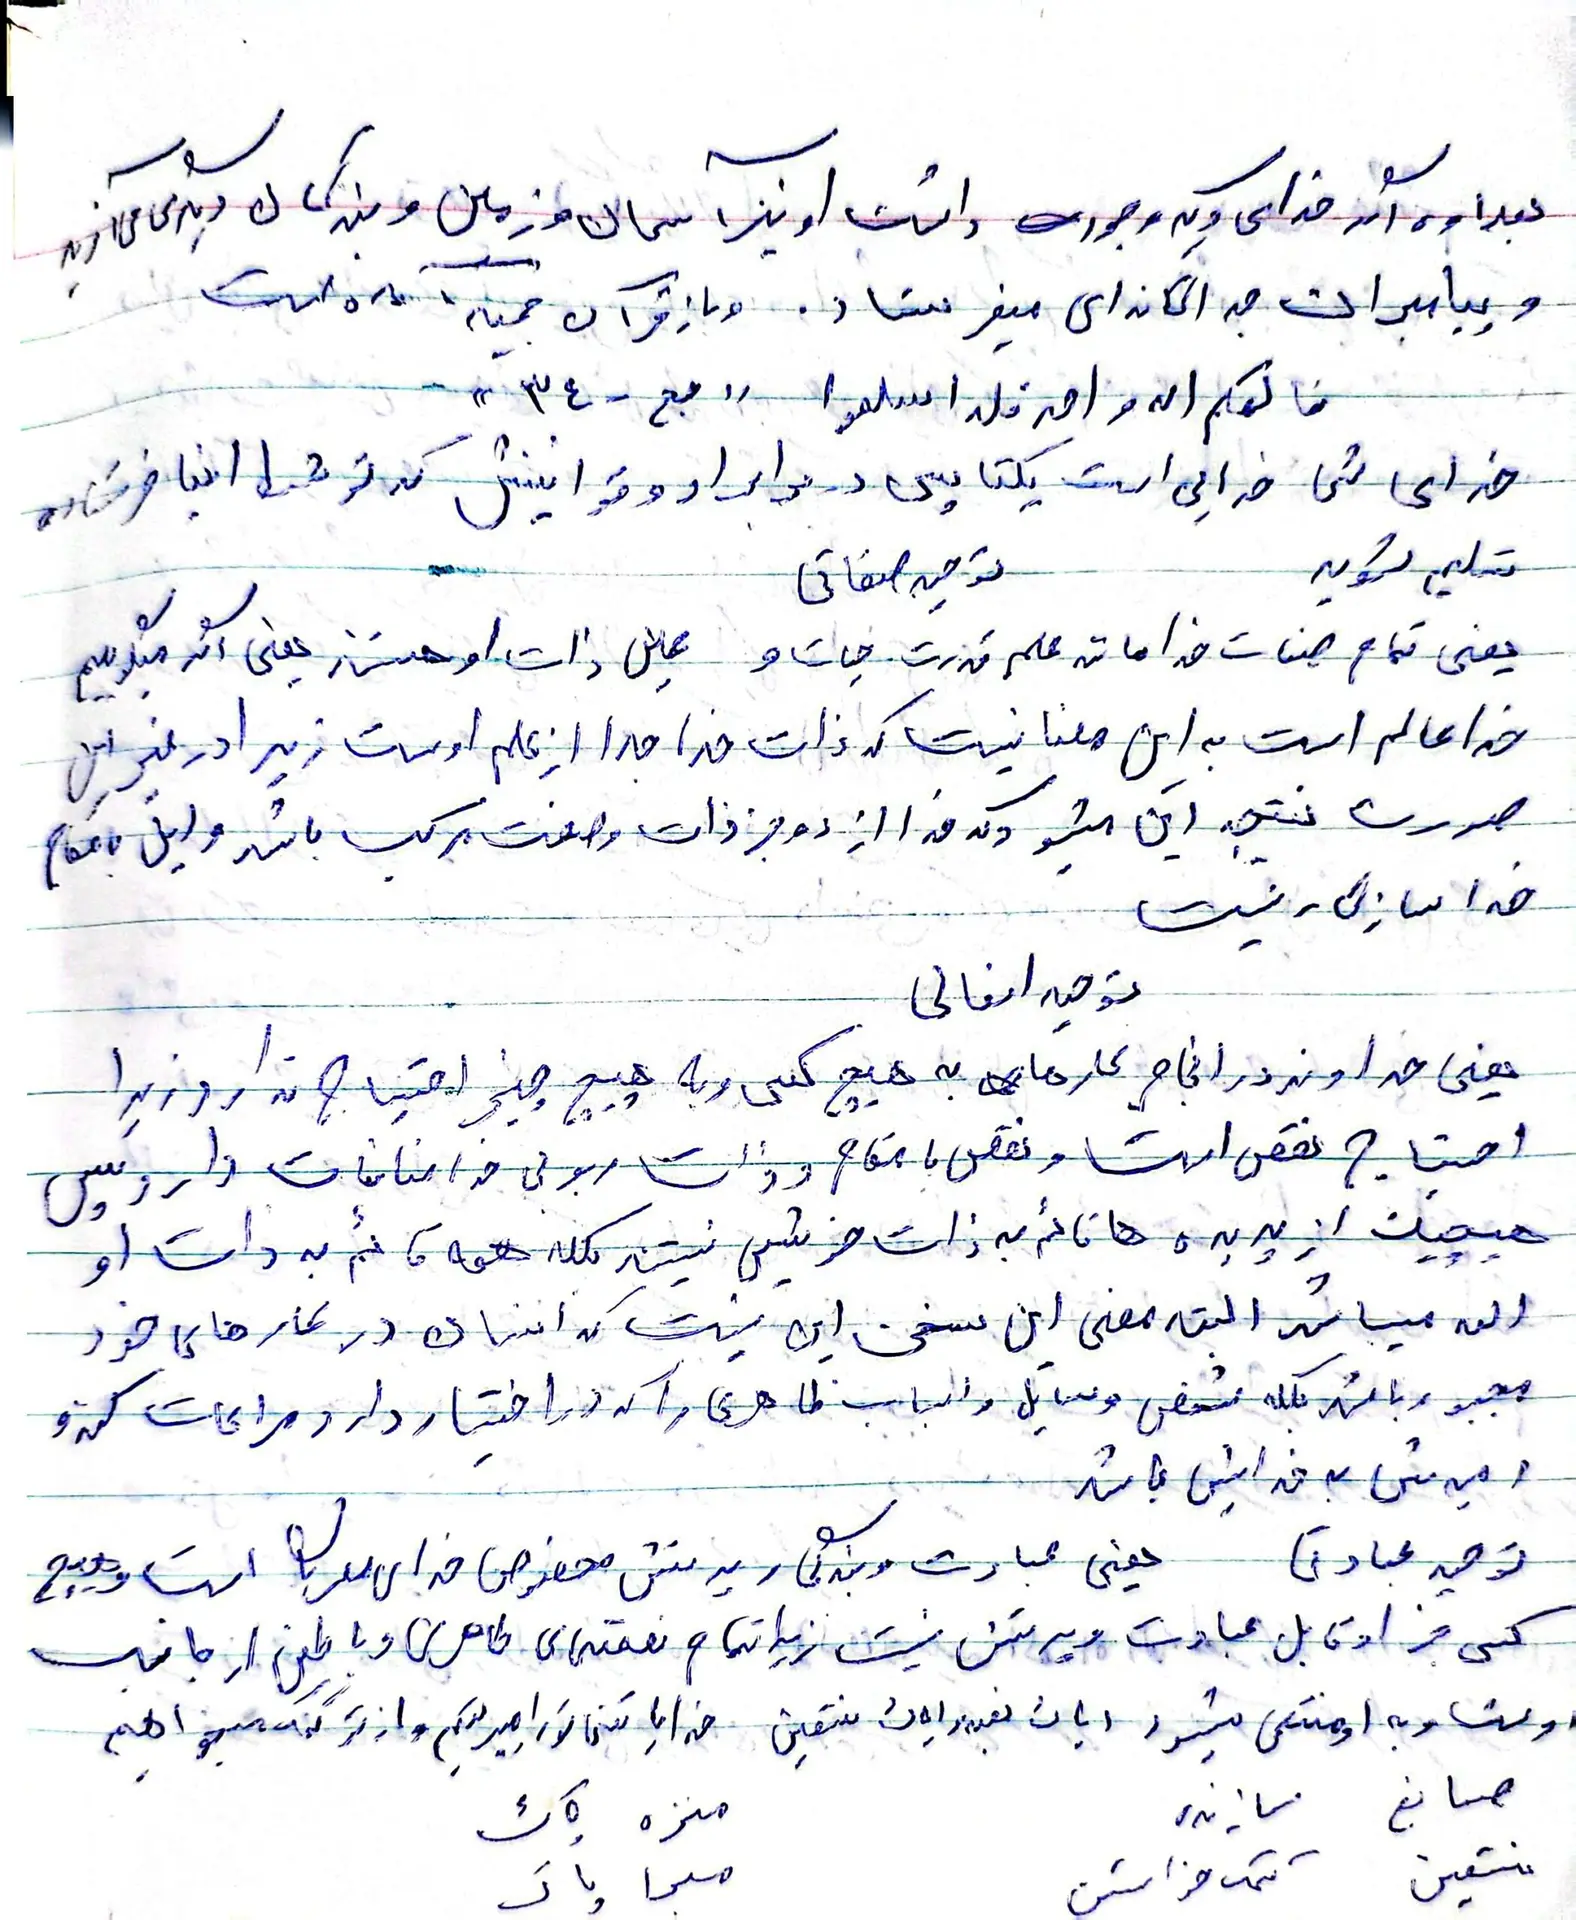 بعلاوه اگر خدای دیگر وجود داشت او نیز آسمان و زمین و بندگان دیگری می آفرید
و پیامبران جداگانه ای میفرستاد. و باز قرآن مجید آمده است
فالهکم اله واحد فله اسلموا "حج - ٣٤"
خدای شما خدایی است یکتا پس در برابر او و قوانینش که توسط انبیا فرستاده
تسلیم شوید توحید صفاتی
یعنی تمام صفات خدا مانند علم قدرت حیات و عین ذات او هستند یعنی اگر میگوییم
خدا عالم است به این معنا نیست که ذات خدا جدا از علم اوست زیرا در غیر این
صورت نتیجه این میشود که خدا از دو جز ذات و صفت مرکب باشد و این با مقام
خدا سازگار نیست
توحید افعالی
یعنی خداوند در انجام کارهای به هیچ کسی و به هیچ چیز احتیاج ندارد زیرا
احتیاج نقص است و نقص با مقام و ذات ربوبی خدا منافات دارد پس
هیچیک از پدیده ها قائم به ذات خویش نیستند بلکه همه قائم به ذات او
میباشد البته معنی این سخن این نیست که انسان در کارهای خود
مجبور باشد بلکه شخص وسایل و اسباب ظاهری را که در اختیار دارد مراعات کند و
امیدش به خدایش باشد
توحید عبادتی یعنی عبادت و بندگی پرستش مخصوص خدای است و هیچ
کسی جز او قابل عبادت و پرستش نیست زیرا تمام نعمتهای ظاهری و باطنی از جانب
اوست و به او منتهی میشود ایاک نعبد و ایاک نستعین خدایا تنها تو را میپرستیم و از تو کمک میخواهیم
صانع سازنده منزه پاک
نستعین کمک خواستن مبرا پاک